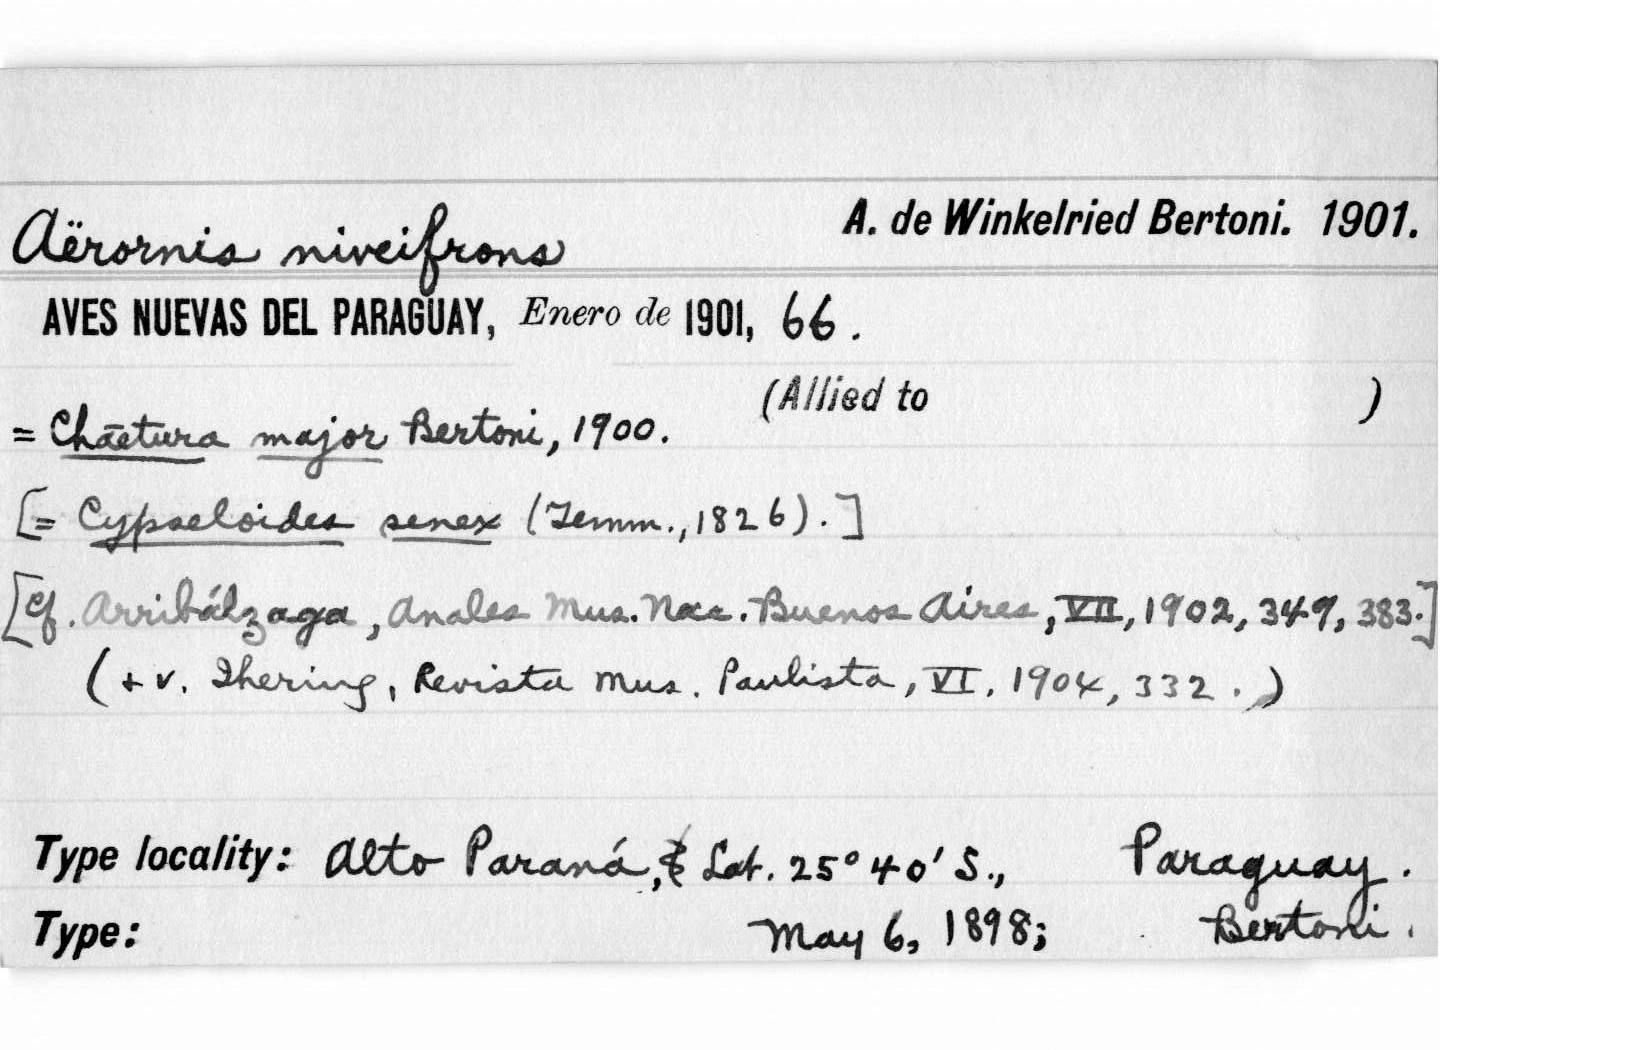 Aërornis niveifrons A. de Winkelried Bertoni. 1901.
AVES NUEVAS DEL PARAGUAY, Enero de 1901, 66.
(Allied to )
= Chaetura major Bertoni, 1900.
[= Cypseloides senex (Temm., 1826).]
[Cf. Arribálzaga, Anales Mus. Nac. Buenos Aires, VII, 1902, 349, 383.]
(+ v. Ihering, Revista Mus. Paulista, VI, 1904, 332.)
Type locality: Alto Paraná, Lat. 25° 40' S., Paraguay.
Type: May 6, 1898; Bertoni.